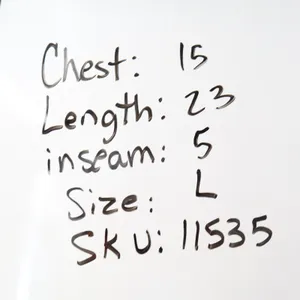 Chest: 15
Length: 23
inseam: 5
Size: L
SKU: 11535